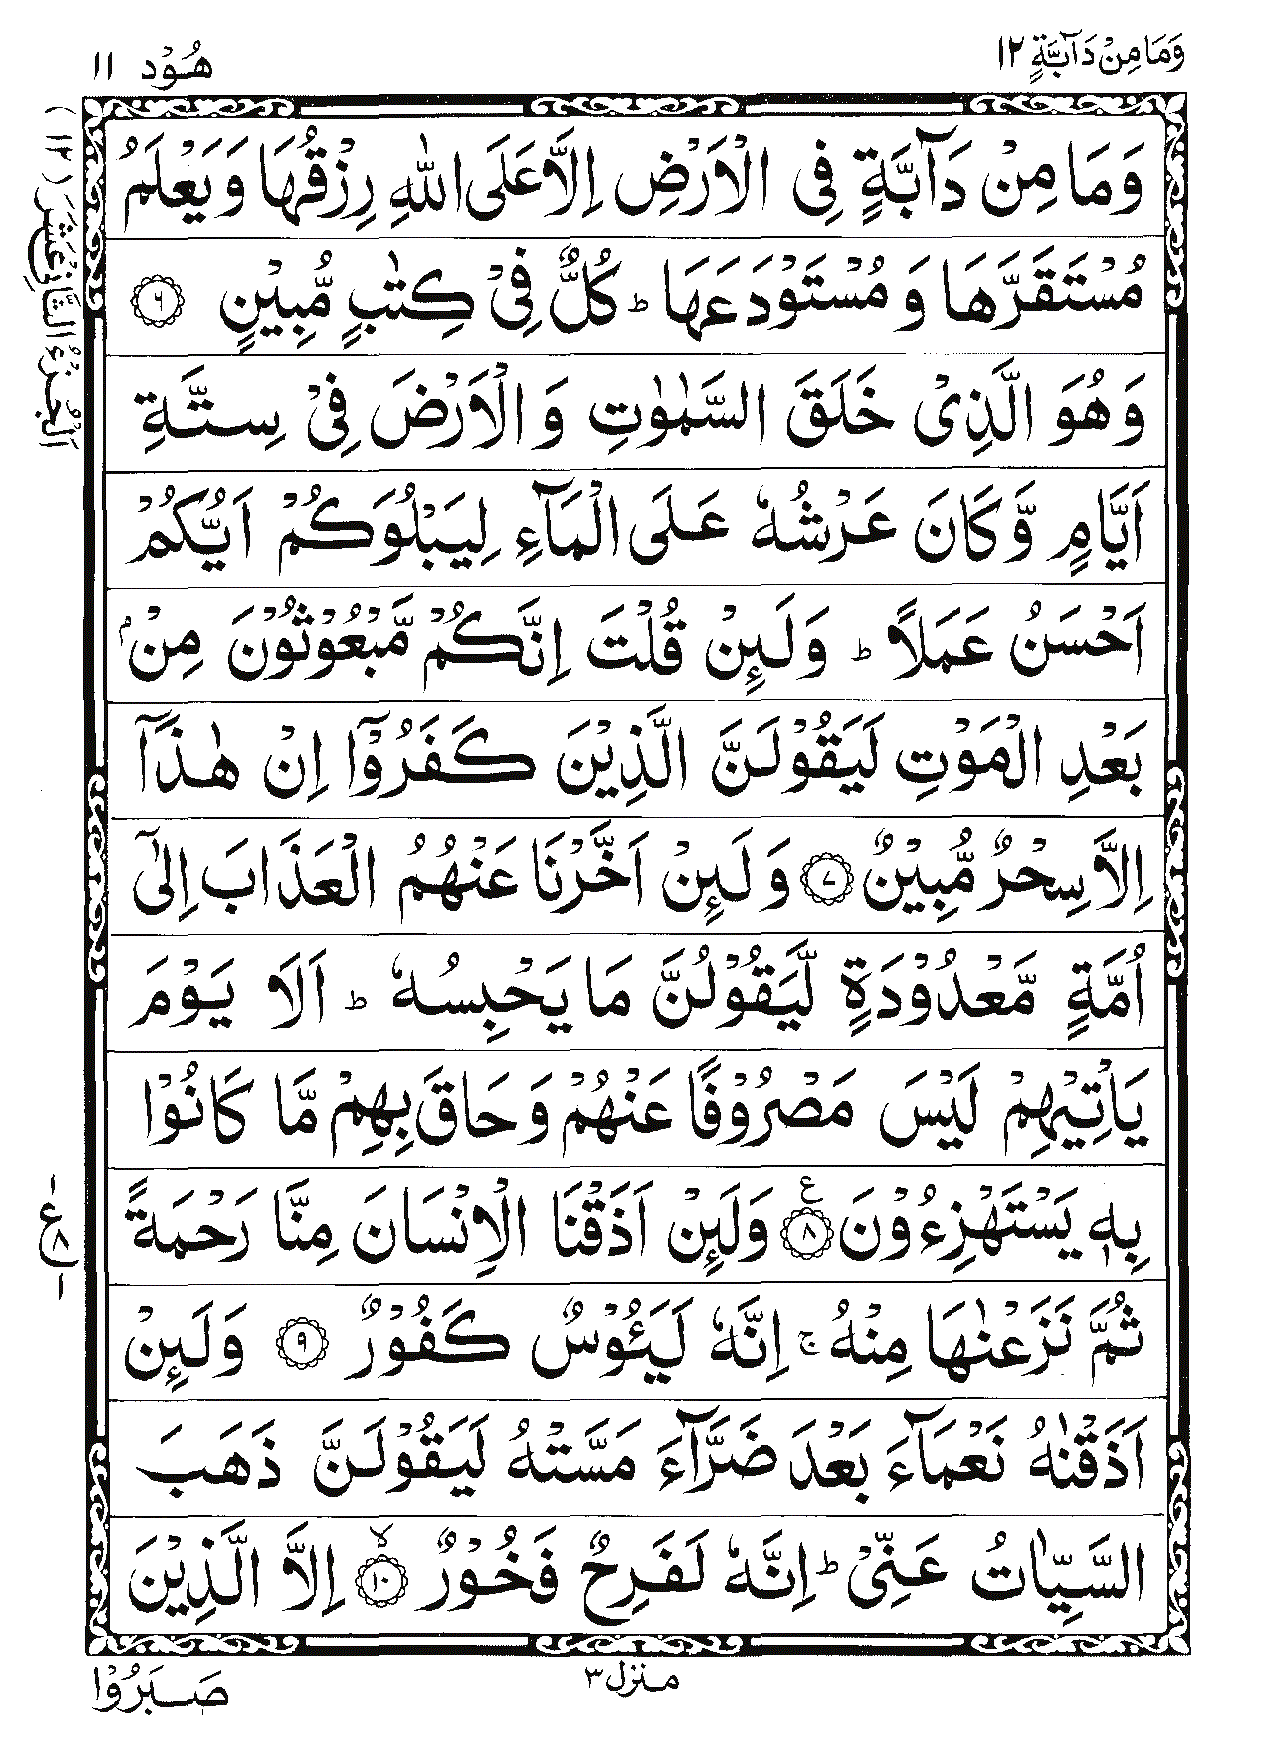 وَمَا مِنْ دَآبَّةٍ ١٢
هُوْد ١١
اَلْجُزْءُ الثَّانِیْ عَشَرَ (١٢)
وَمَا مِنْ دَآبَّةٍ فِی الْاَرْضِ اِلَّا عَلَی اللّٰهِ رِزْقُهَا وَ یَعْلَمُ
مُسْتَقَرَّهَا وَ مُسْتَوْدَعَهَا ؕ كُلٌّ فِیْ كِتٰبٍ مُّبِیْنٍ ﴿٦﴾
وَ هُوَ الَّذِیْ خَلَقَ السَّمٰوٰتِ وَ الْاَرْضَ فِیْ سِتَّةِ
اَیَّامٍ وَّ كَانَ عَرْشُهٗ عَلَی الْمَآءِ لِیَبْلُوَكُمْ اَیُّكُمْ
اَحْسَنُ عَمَلًا ؕ وَلَىِٕنْ قُلْتَ اِنَّكُمْ مَّبْعُوْثُوْنَ مِنْۢ
بَعْدِ الْمَوْتِ لَیَقُوْلَنَّ الَّذِیْنَ كَفَرُوْۤا اِنْ هٰذَاۤ
اِلَّا سِحْرٌ مُّبِیْنٌ ﴿٧﴾ وَ لَىِٕنْ اَخَّرْنَا عَنْهُمُ الْعَذَابَ اِلٰۤی
اُمَّةٍ مَّعْدُوْدَةٍ لَّیَقُوْلُنَّ مَا یَحْبِسُهٗ ؕ اَلَا یَوْمَ
یَاْتِیْهِمْ لَیْسَ مَصْرُوْفًا عَنْهُمْ وَ حَاقَ بِهِمْ مَّا كَانُوْا
بِهٖ یَسْتَهْزِءُوْنَ ﴿٨﴾ ع وَلَىِٕنْ اَذَقْنَا الْاِنْسَانَ مِنَّا رَحْمَةً
ثُمَّ نَزَعْنٰهَا مِنْهُ ۚ اِنَّهٗ لَیَـُٔوْسٌ كَفُوْرٌ ﴿٩﴾ وَلَىِٕنْ
اَذَقْنٰهُ نَعْمَآءَ بَعْدَ ضَرَّآءَ مَسَّتْهُ لَیَقُوْلَنَّ ذَهَبَ
السَّیِّاٰتُ عَنِّیْ ؕ اِنَّهٗ لَفَرِحٌ فَخُوْرٌ ﴿١٠﴾ ۙ اِلَّا الَّذِیْنَ
ع ٨
منزل ٣
صَبَرُوْا